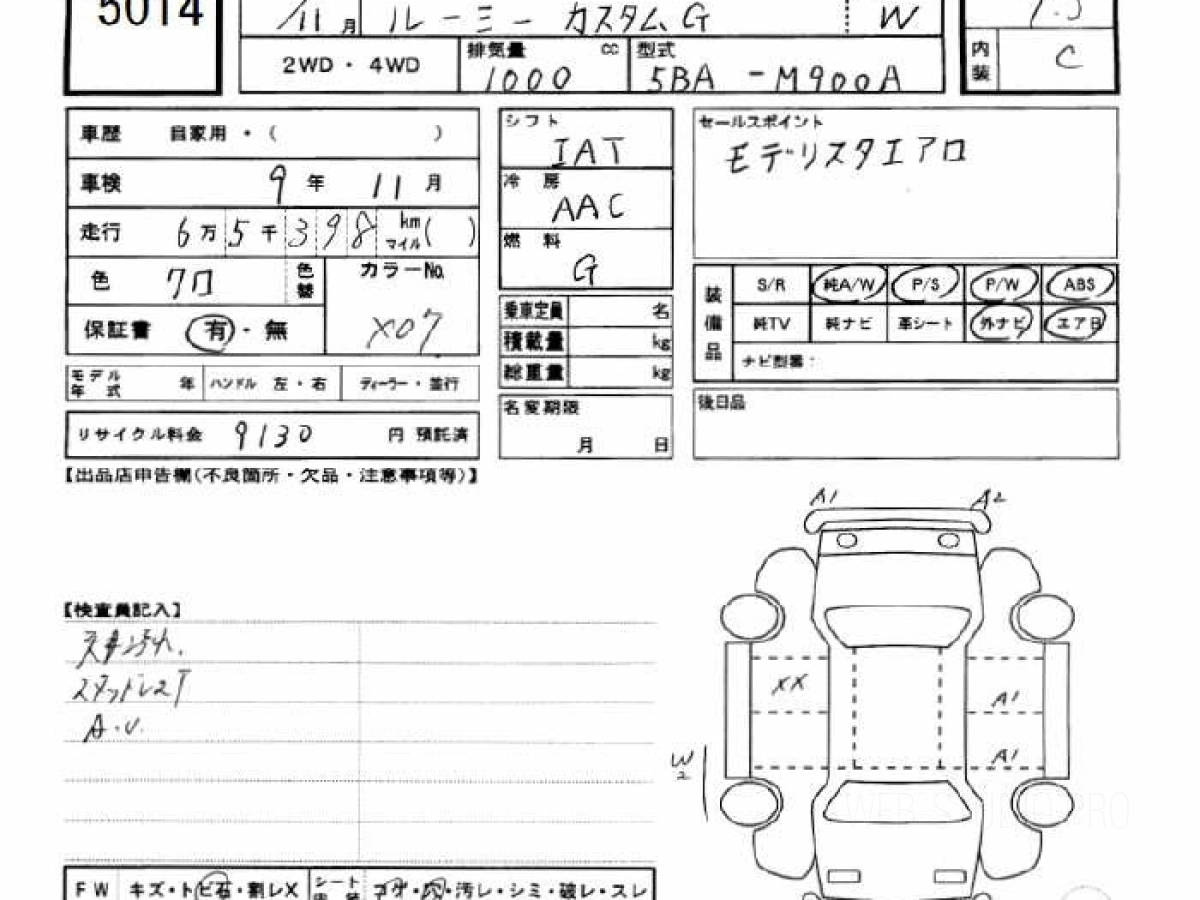 5014
11月 ルーミー カスタムG W
2WD・4WD 排気量 1000 cc 型式 5BA-M900A 内装 C
車歴 自家用・( )
車検 9年 11月
走行 6万5千398 km マイル( )
色 クロ 色替 カラーNo. X07
保証書 有・無
モデル年式 年 ハンドル 左・右 ディーラー・並行
リサイクル料金 9130 円 預託済
シフト IAT
冷房 AAC
燃料 G
乗車定員 名
積載量 kg
総重量 kg
名変期限 月 日
セールスポイント
モデリスタエアロ
装備品 S/R 純A/W P/S P/W ABS
純TV 純ナビ 革シート 外ナビ エアB
ナビ型番:
後日品
【出品店申告欄(不良箇所・欠品・注意事項等)】
A1 A2
【検査員記入】
スタッドレスT
A・U.
XX A1
A1
W2
WEB STUDIO PRO
FW キズ・トビ石・割レX シート コゲ・穴・汚レ・シミ・破レ・スレ